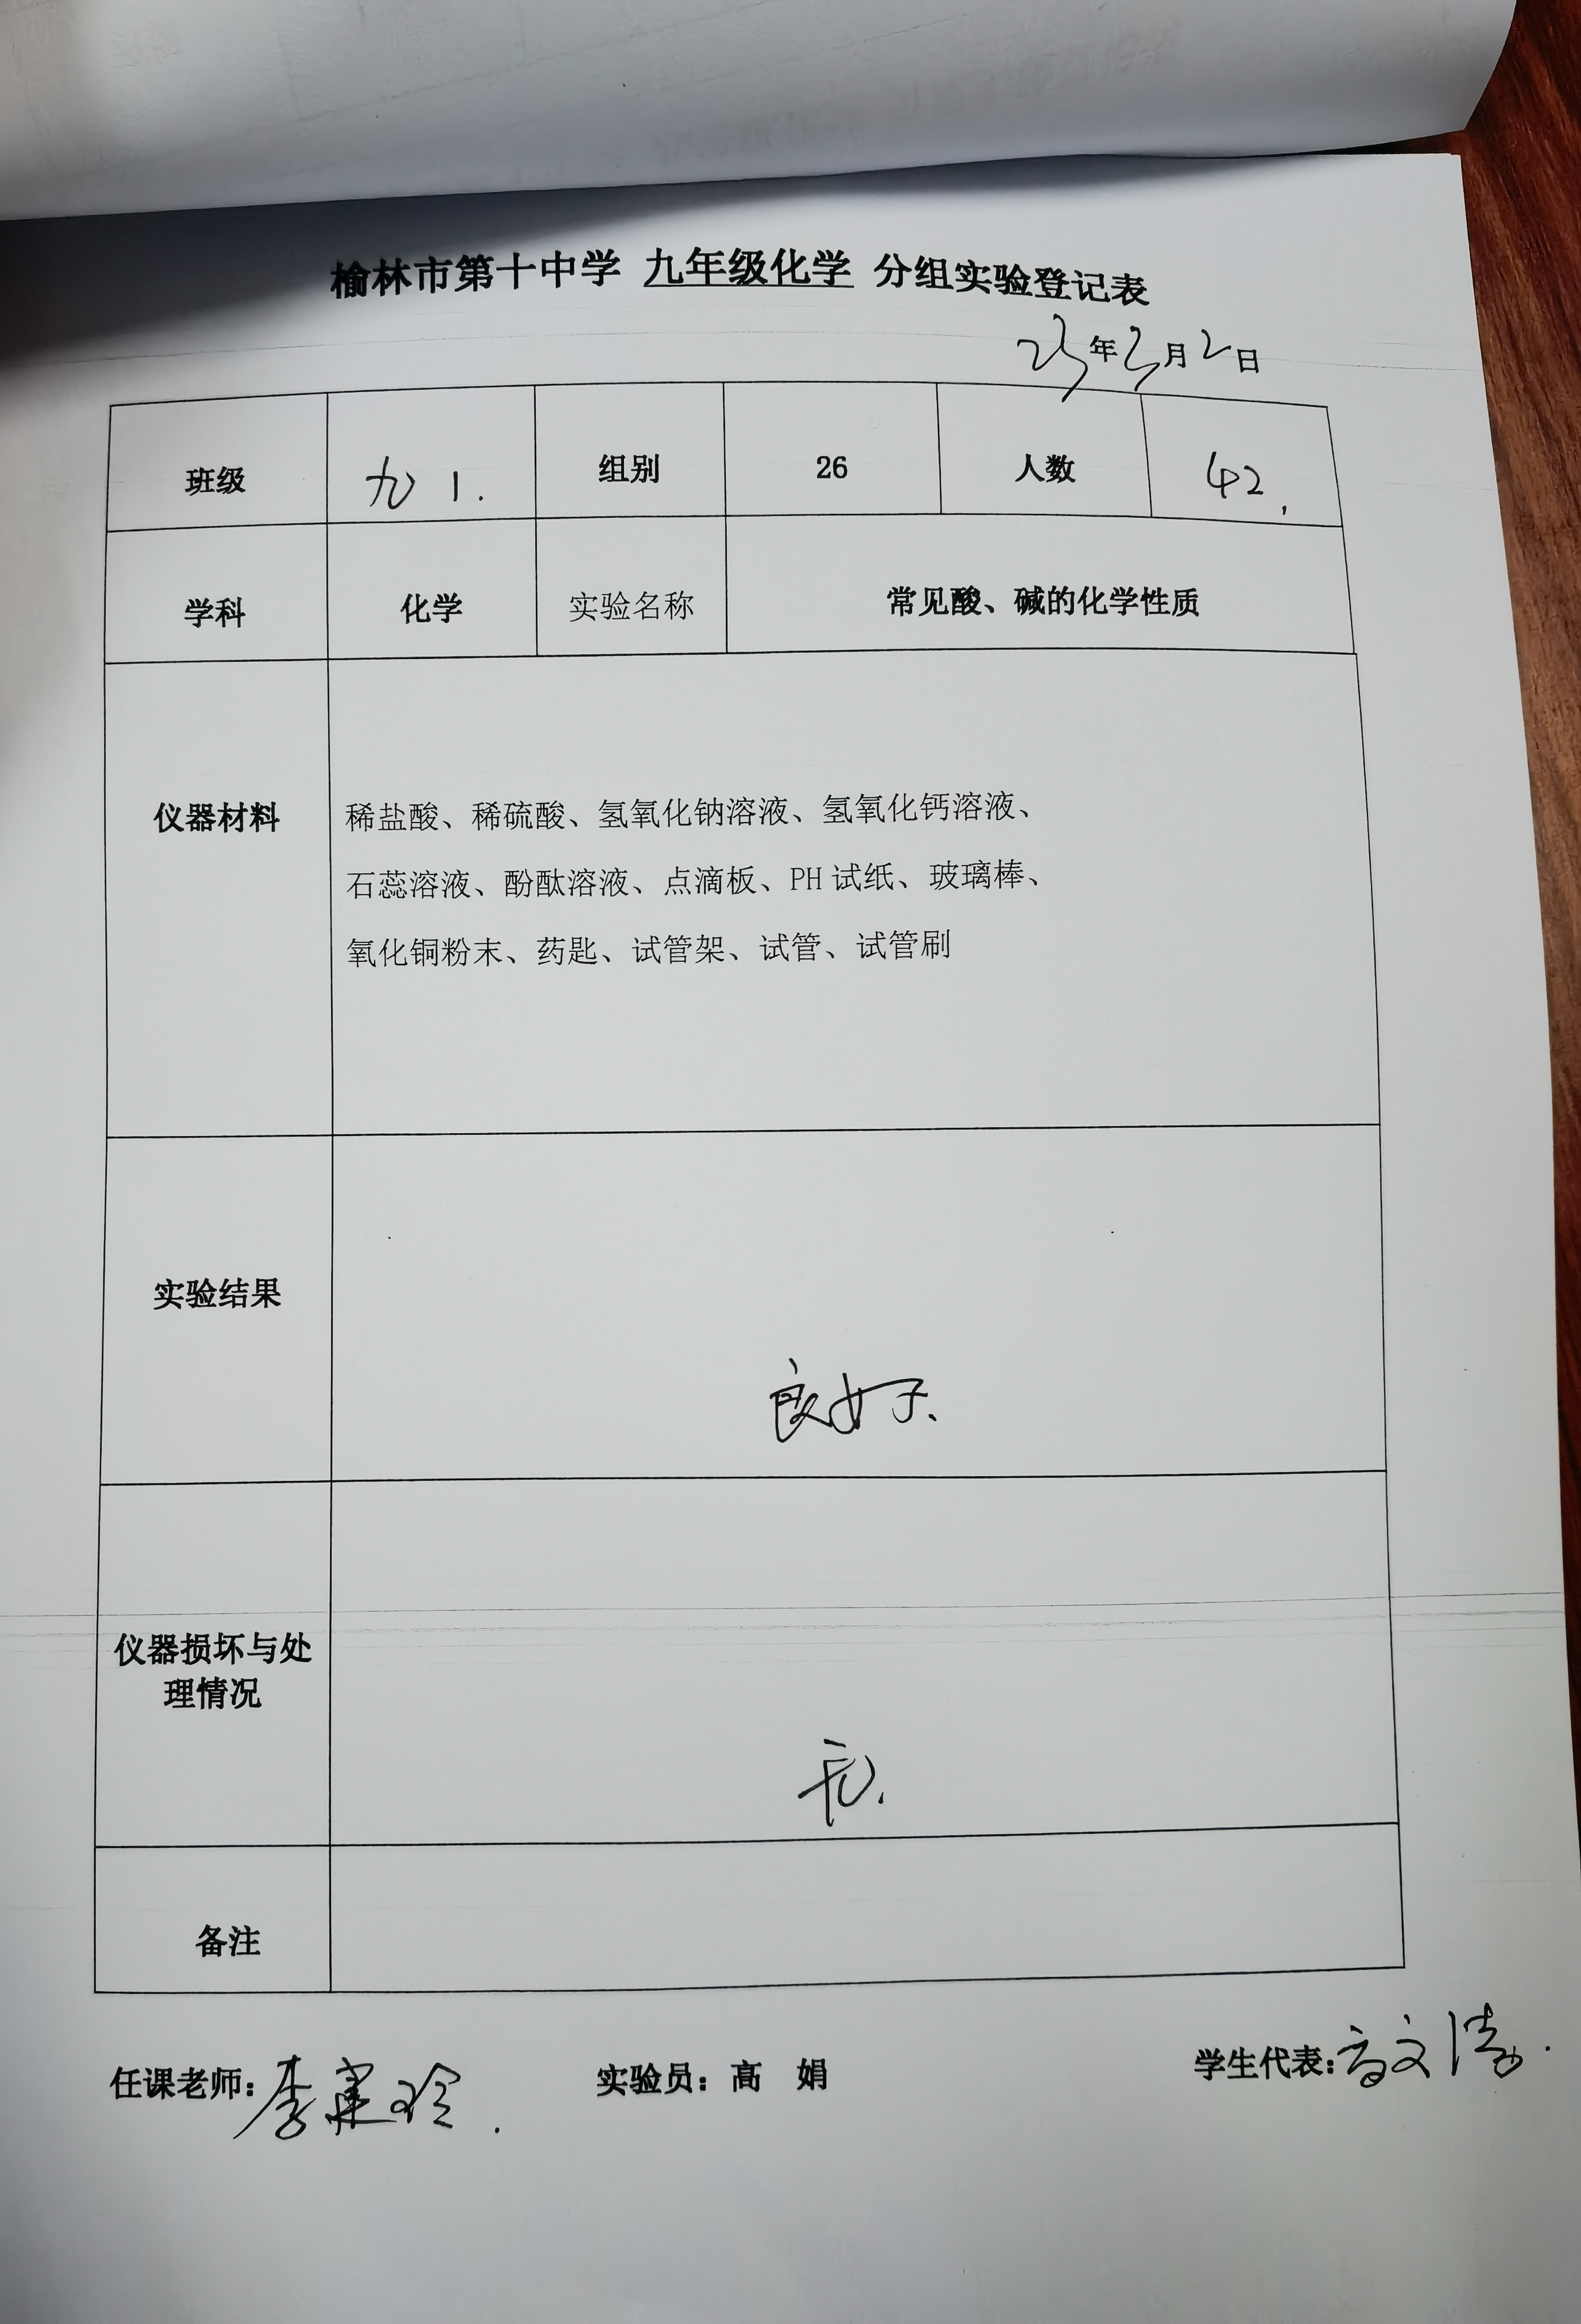 榆林市第十中学 九年级化学 分组实验登记表
23年3月2日
班级 九1. 组别 26 人数 42.
学科 化学 实验名称 常见酸、碱的化学性质
仪器材料
稀盐酸、稀硫酸、氢氧化钠溶液、氢氧化钙溶液、
石蕊溶液、酚酞溶液、点滴板、PH 试纸、玻璃棒、
氧化铜粉末、药匙、试管架、试管、试管刷
实验结果
良好.
仪器损坏与处
理情况
无.
备注
任课老师: 李 玲. 实验员: 高 娟 学生代表: 高文